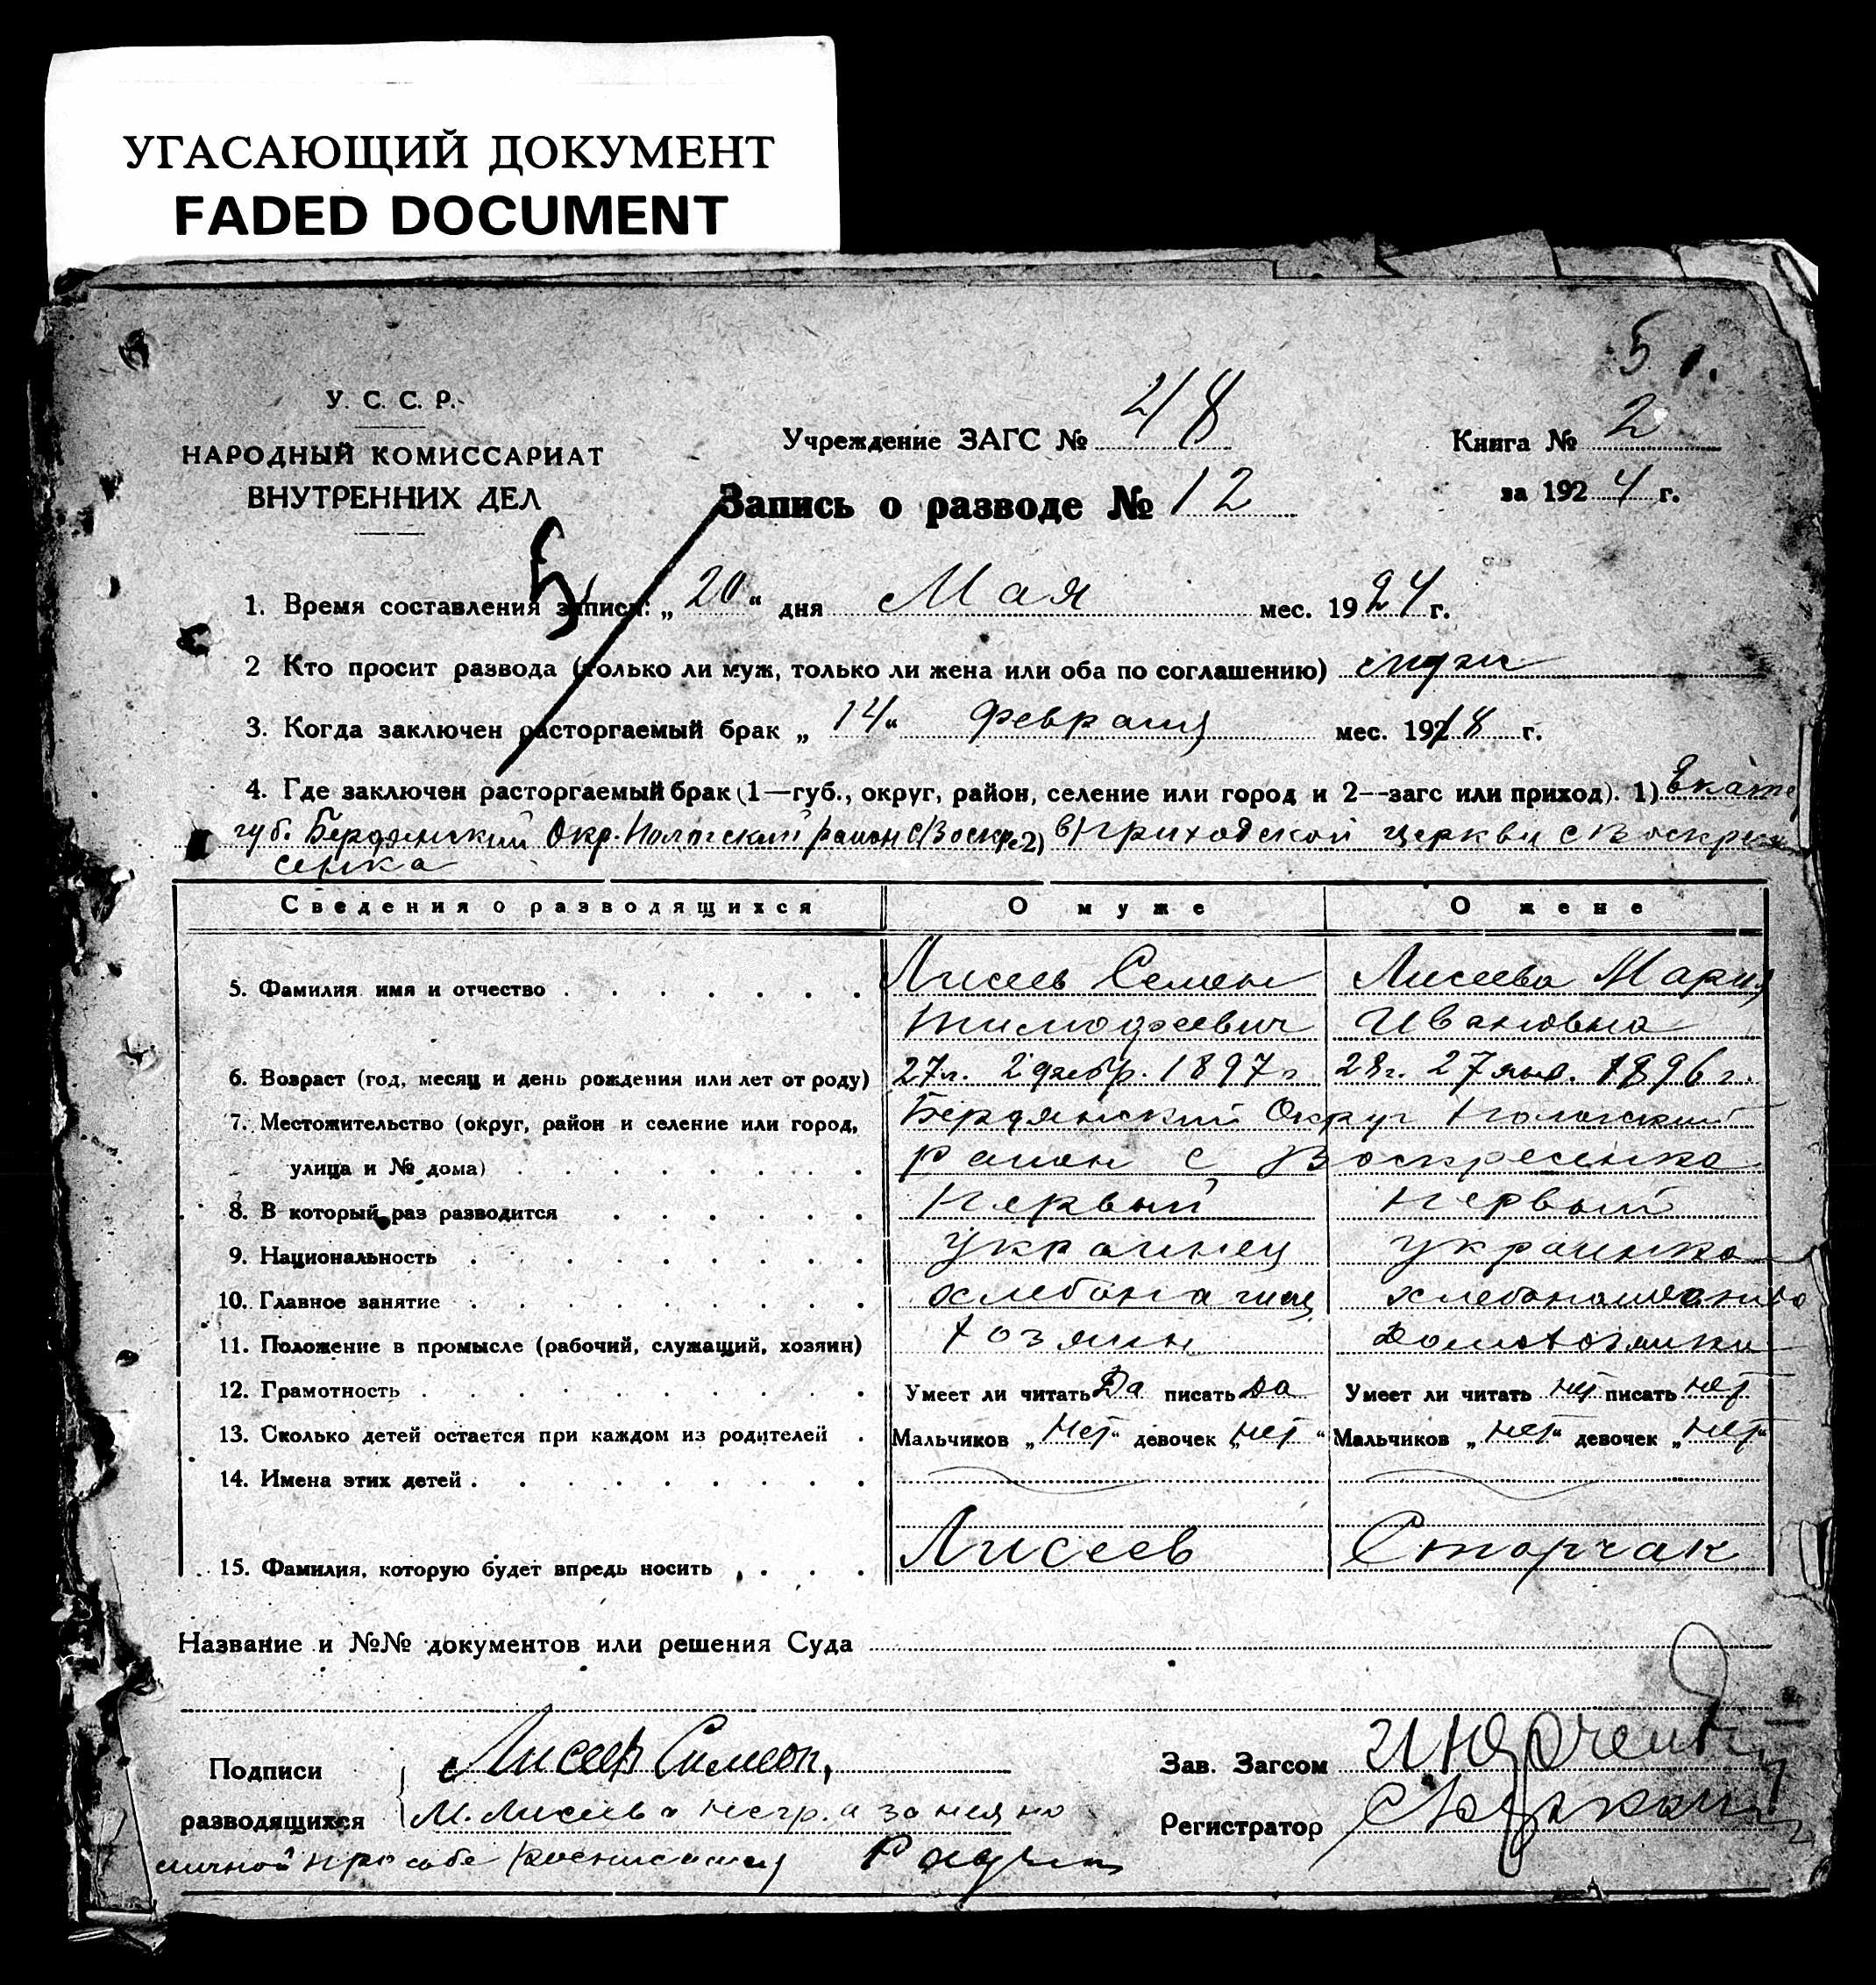 УГАСАЮЩИЙ ДОКУМЕНТ
FADED DOCUMENT
5
У. С. С. Р.
НАРОДНЫЙ КОМИССАРИАТ
ВНУТРЕННИХ ДЕЛ
Учреждение ЗАГС № 218
Книга № 2
Запись о разводе № 12
за 1924 г.
5
1. Время составления записи: „20“ дня Мая мес. 1924 г.
2 Кто просит развода (только ли муж, только ли жена или оба по соглашению) муж
3. Когда заключен расторгаемый брак „14“ февраля мес. 1918 г.
4. Где заключен расторгаемый брак (1—губ., округ, район, селение или город и 2—загс или приход). 1) Екате
губ. Бердянский Окр. Пологский район с/Воскре 2) в приходской церкви с Воскре
сенка
Сведения о разводящихся О муже О жене
5. Фамилия имя и отчество Лисеев Семен Лисеева Мария
Тимофеевич Ивановна
6. Возраст (год, месяц и день рождения или лет от роду) 27л. 2 декбр. 1897 г 28г. 27 янв. 1896 г.
7. Местожительство (округ, район и селение или город, Бердянский Округ Пологский
улица и № дома) район с Воскресенка
8. В который раз разводится первый первый
9. Национальность украинец украинка
10. Главное занятие хлебопашец хлебопашество
11. Положение в промысле (рабочий, служащий, хозяин) хозяин домохозяйка
12. Грамотность Умеет ли читать Да писать Да Умеет ли читать нет писать нет
13. Сколько детей остается при каждом из родителей Мальчиков „нет“ девочек „нет“ Мальчиков „нет“ девочек „нет“
14. Имена этих детей
15. Фамилия, которую будет впредь носить Лисеев Сторчак
Название и №№ документов или решения Суда
Подписи Лисеев Симеон, Зав. Загсом
разводящихся М. Лисеева негр. а за нея по Регистратор
личной просьбе росписался